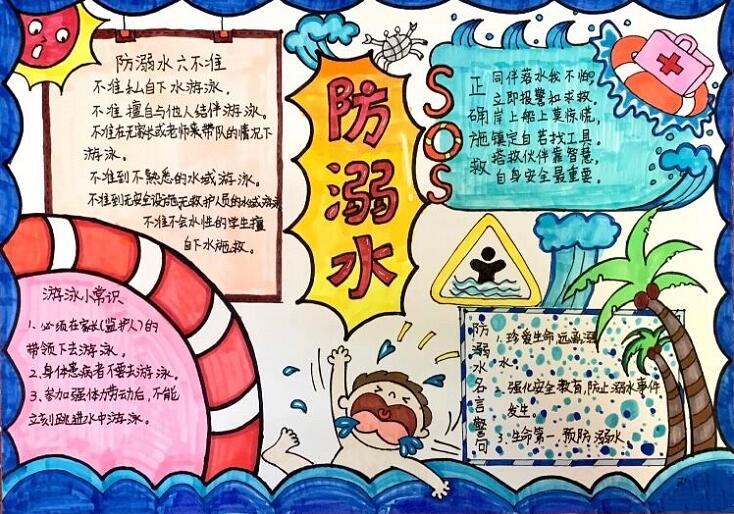 防溺水六不准
不准私自下水游泳。
不准擅自与他人结伴游泳。
不准在无家长或老师带队的情况下
游泳。
不准到不熟悉的水域游泳。
不准到无安全设施无救护人员的水域游泳
不准不会水性的学生擅
自下水施救。
防溺水
SOS
正确施救
同伴落水我不怕
立即报警和求救。
岸上船上莫惊慌,
镇定自若找工具。
搭救伙伴靠智慧,
自身安全最重要。
游泳小常识
1、必须在家长(监护人)的
带领下去游泳。
2、身体患病者不要去游泳。
3、参加强体力劳动后,不能
立刻跳进水中游泳。
防溺水名言警句
1、珍爱生命,远离溺
水。
强化安全教育,防止溺水事件
发生。
3、生命第一,预防溺水